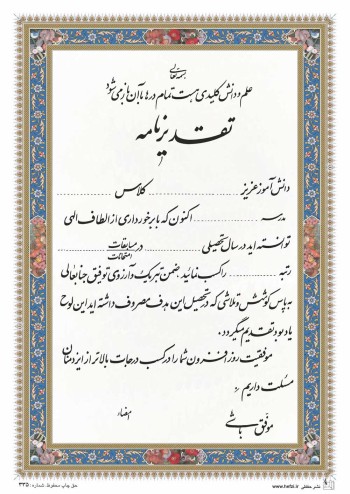 بسمه تعالی
علم و دانش کلیدی است تمام درها با آن باز می شود
تقدیرنامه
دانش آموز عزیز .............. کلاس ..............
مدرسه .............. اکنون که با برخورداری از الطاف الهی
توانسته اید در سال تحصیلی .............. در مسابقات
امتحانات
رتبه .............. را کسب نمائید ضمن تبریک و آرزوی توفیق جنابعالی
بپاس کوشش و تلاشی که در تحصیل این هدف مصروف داشته اید این لوح
یادبود تقدیم میگردد.
موفقیت روزافزون شما را در کسب درجات بالاتر از ایزد منان
مسئلت داریم
امضاء
موفق باشی
حق چاپ محفوظ. شماره: ۳۳۵
www.hefzi.ir نشر حفظی